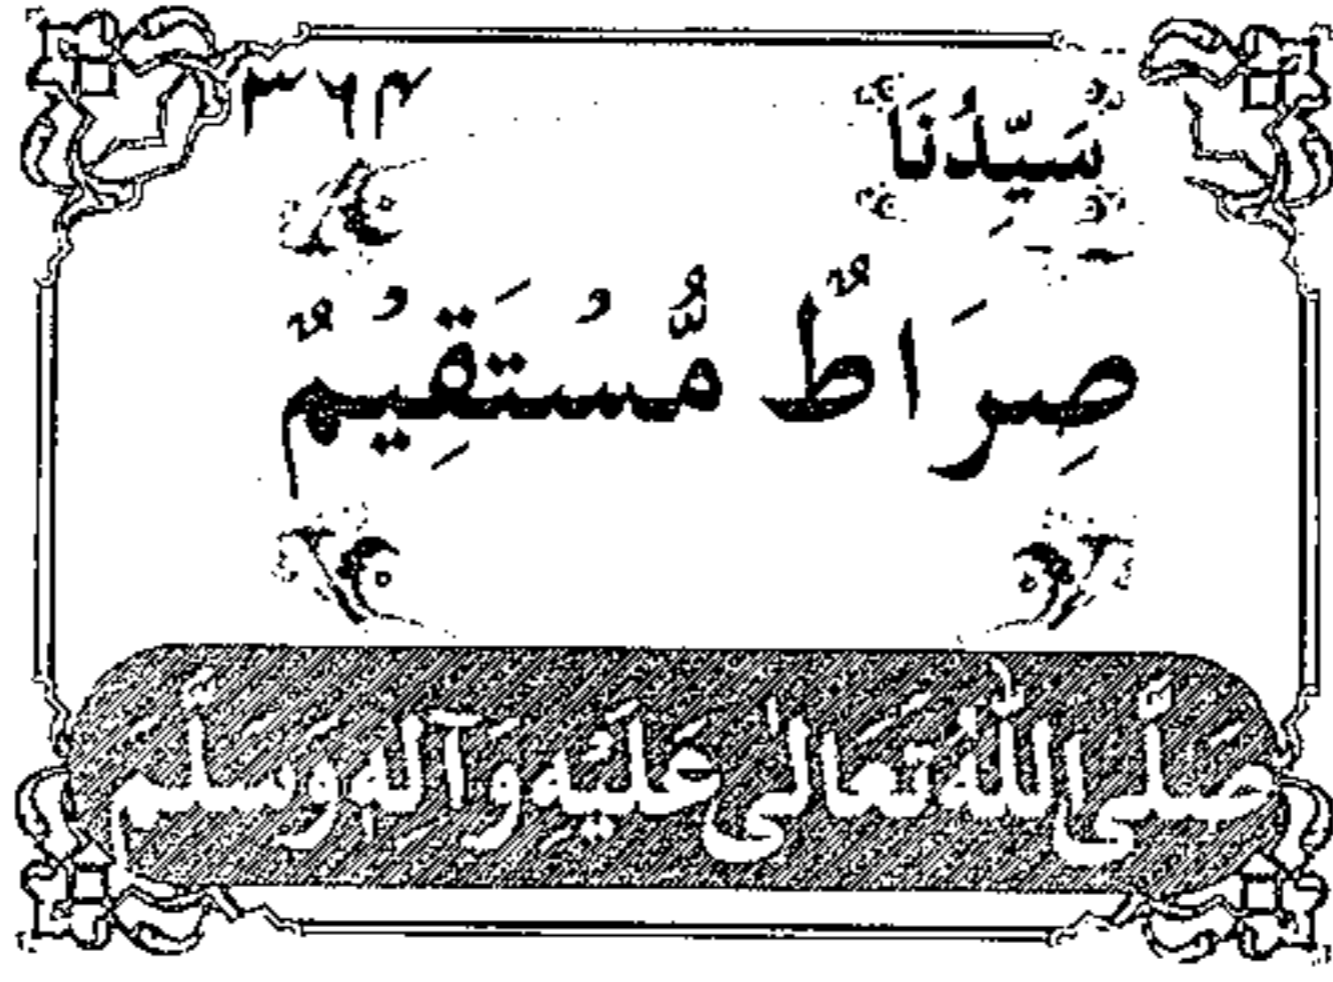 ۳۶۴
سَيِّدُنَا
صِرَاطٌ مُّسْتَقِيْمٌ
صَلَّى اللّٰهُ تَعَالٰى عَلَيْهِ وَآلِهٖ وَسَلَّمَ